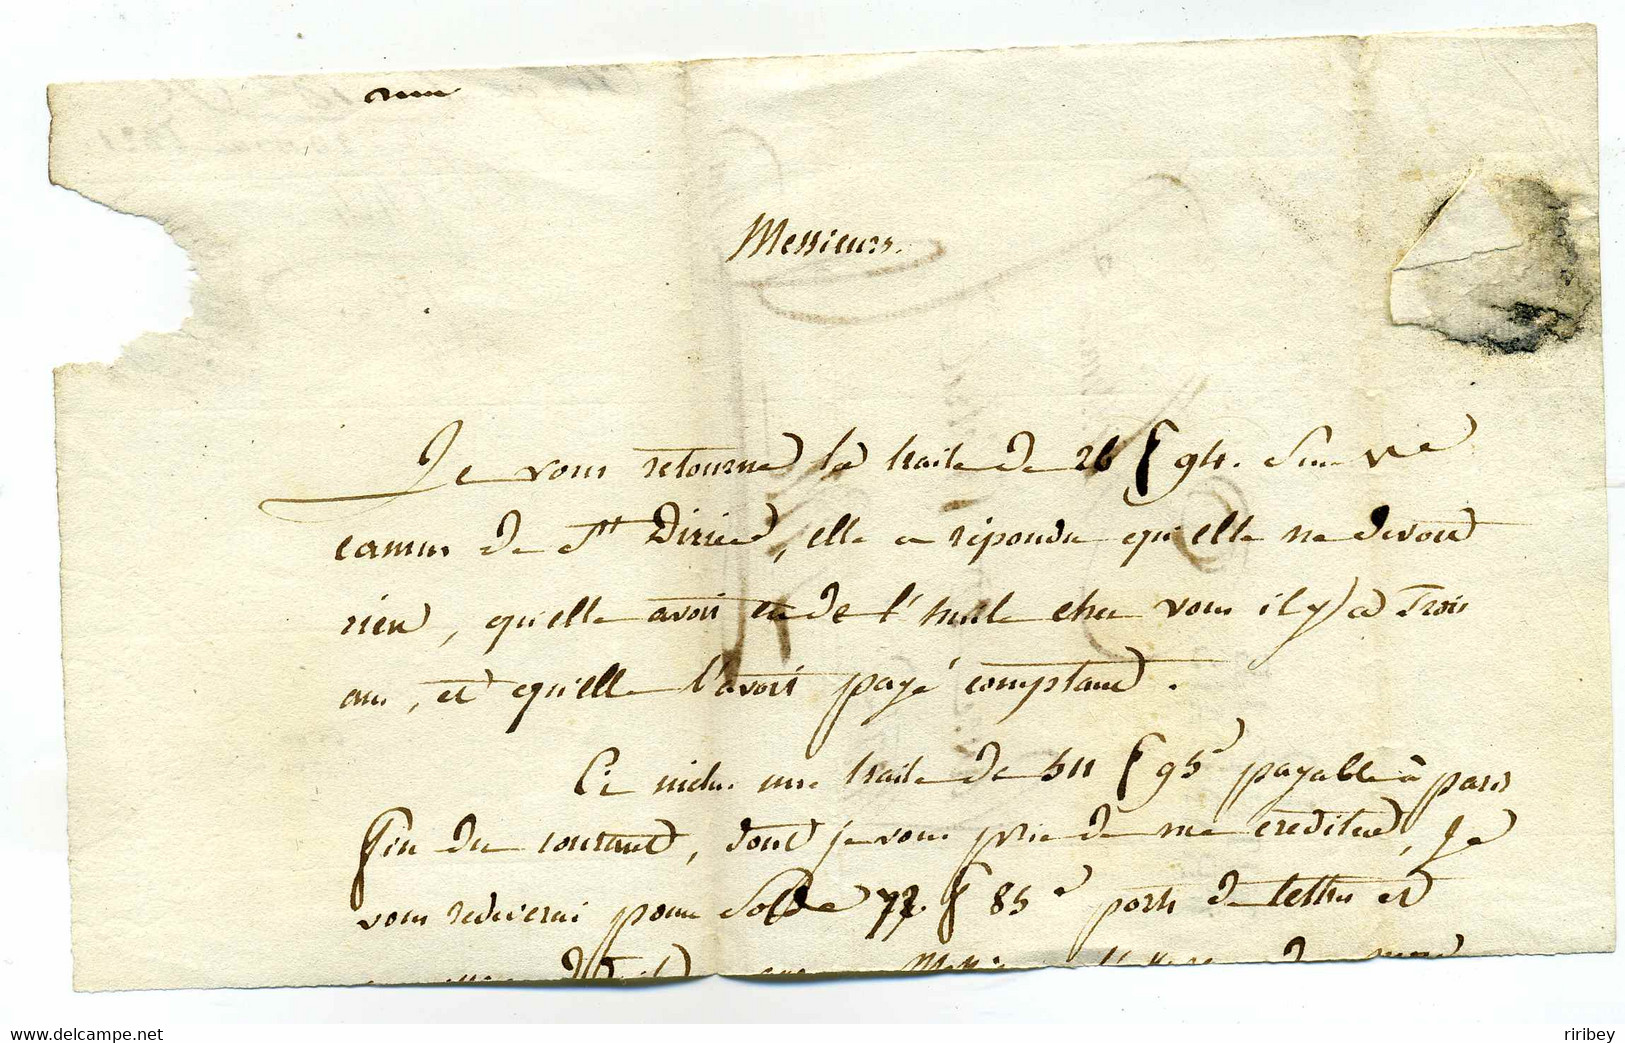 Messieurs.
Je vous retourne la traite de 26 f 94. Sur Ve
camus de St Dizier, elle a répondu qu'elle ne devoit
rien, qu'elle avoit eu de l'huile chez vous il y a Trois
ans, et qu'elle l'avoit payé comptant.
Ci inclus une traite de 511 f 95c payable à paris
fin du courant, dont je vous prie de me crediter, je
vous redeverai pour Solde 77. f 85c ports de lettres et
delcampe.net
riribey